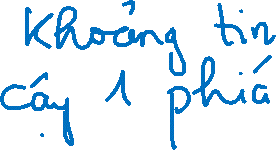 Khoảng tin
cậy 1 phiá